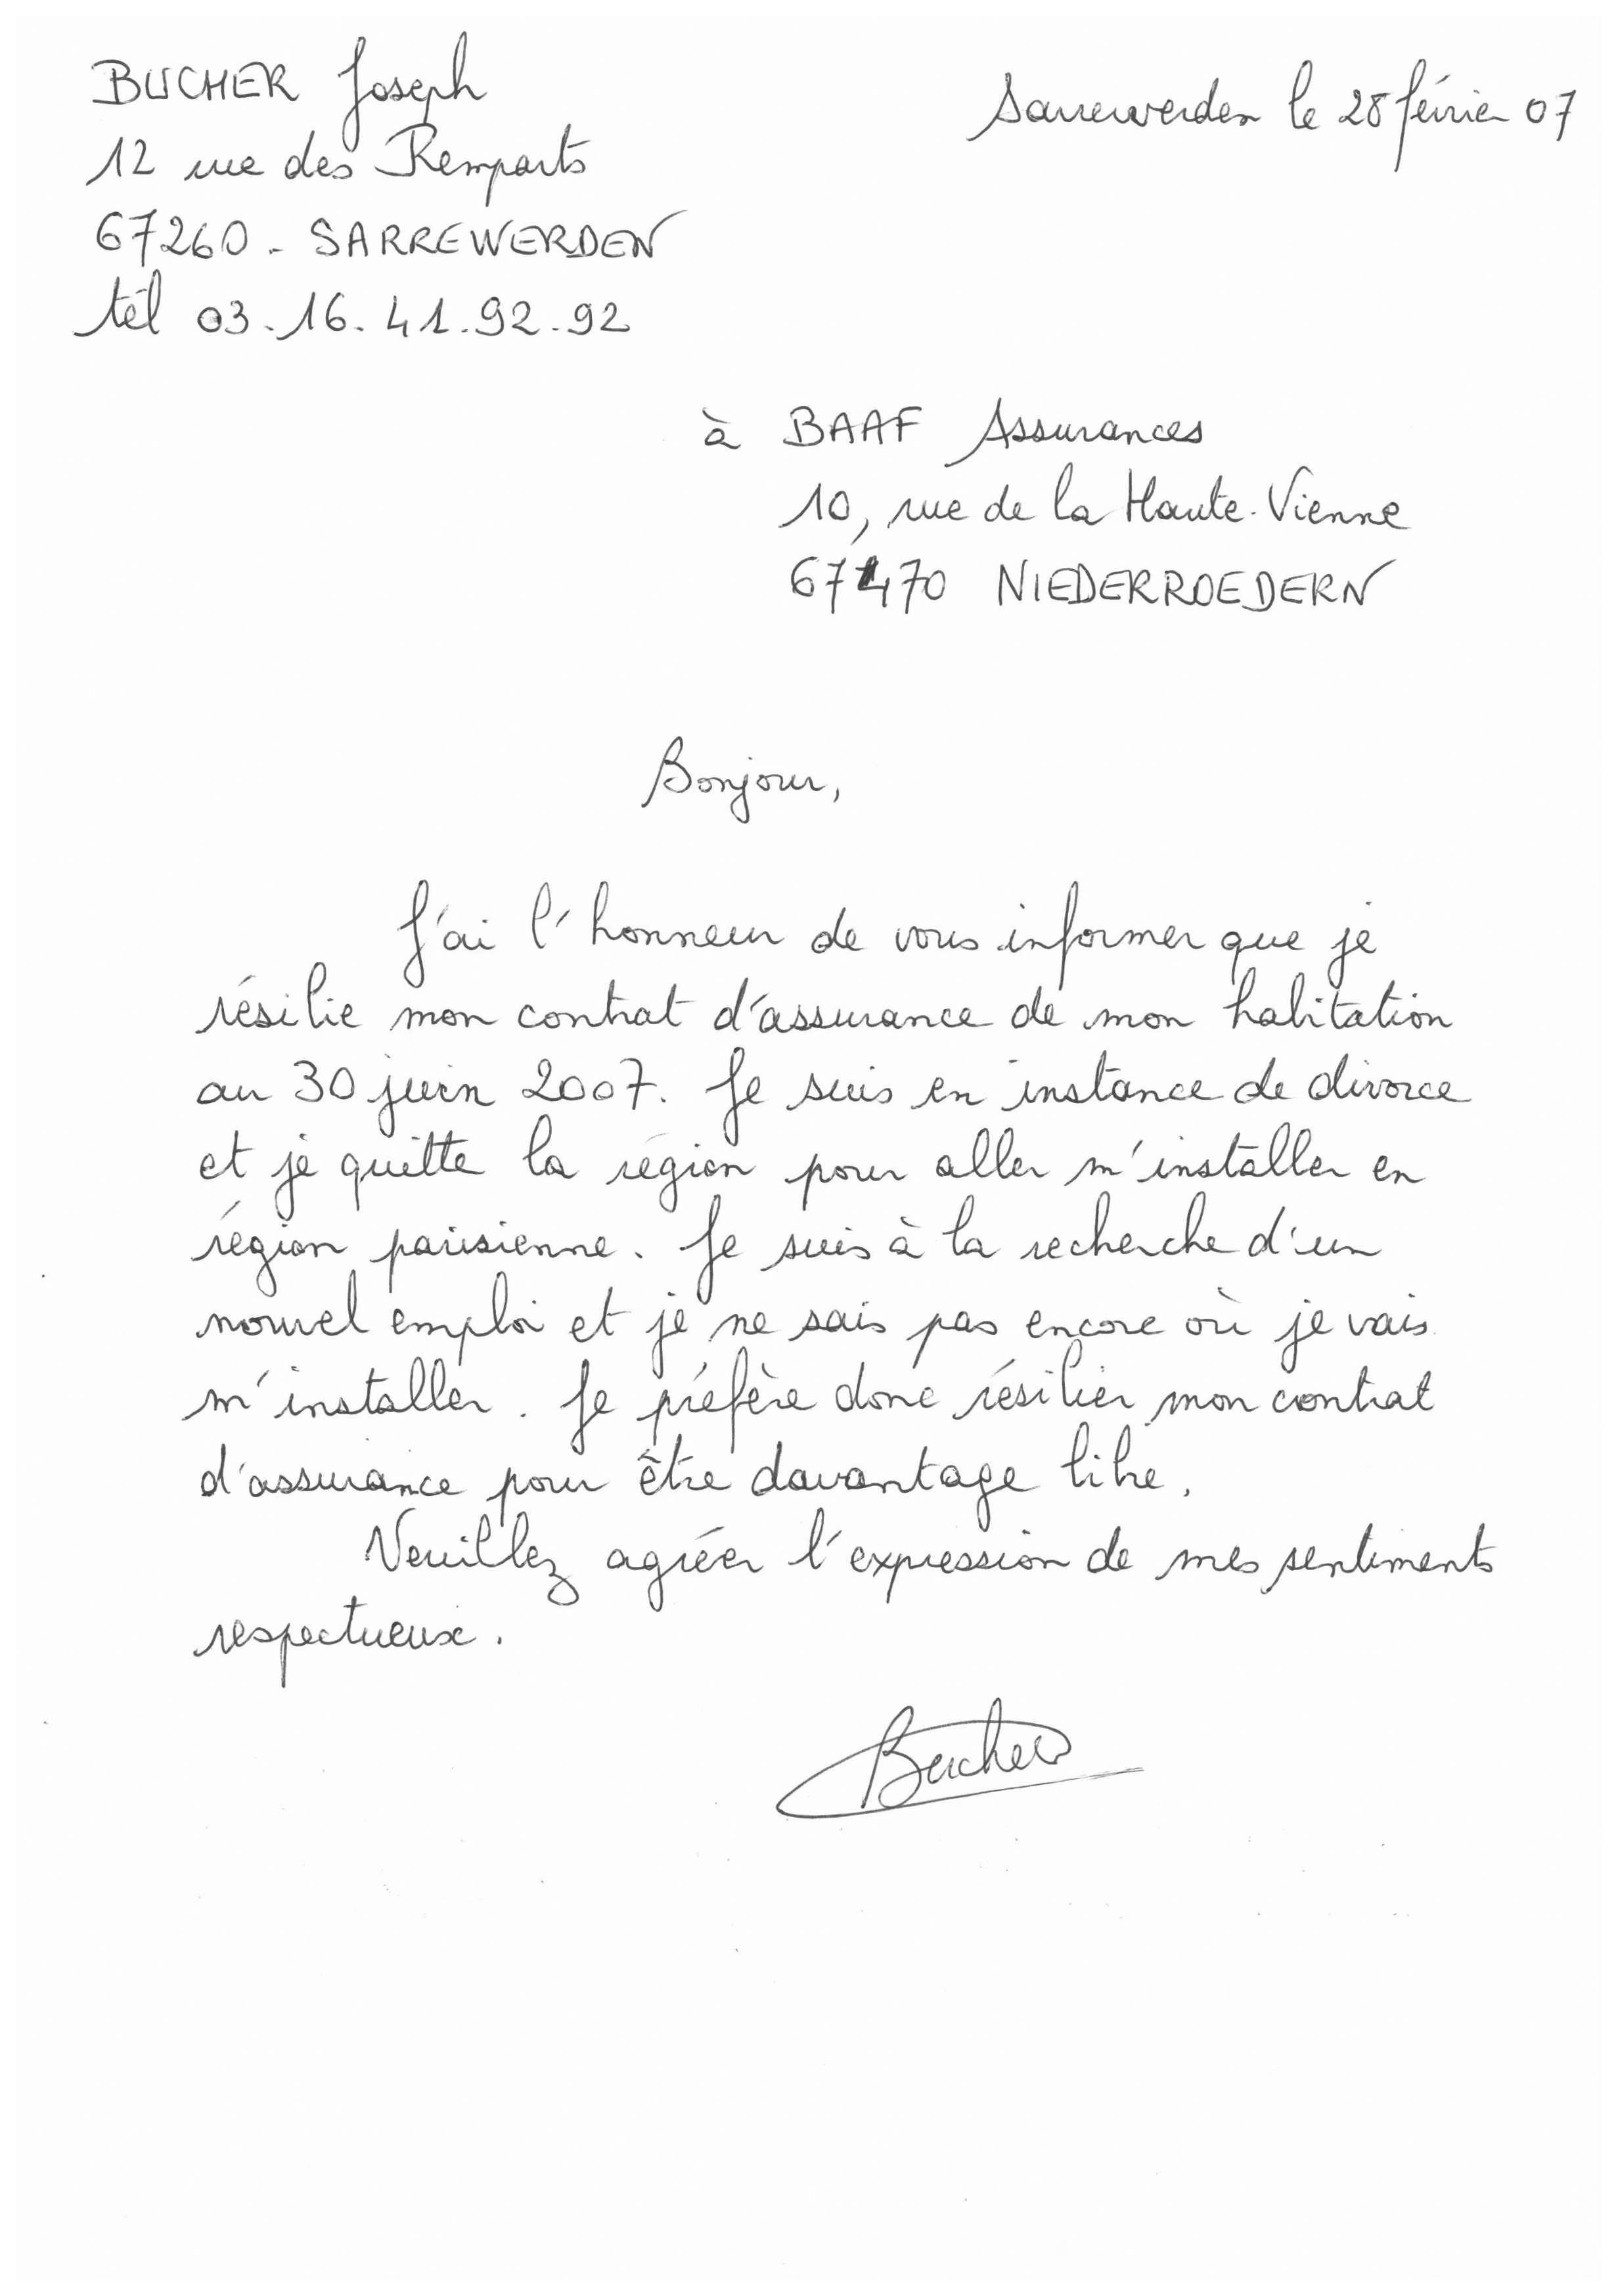 BUCHER Joseph
Sarrewerden le 28 février 07
12 rue des Remparts
67260 - SARREWERDEN
tél 03.16.41.92.92
à BAAF Assurances
10, rue de la Haute-Vienne
67470 NIEDERROEDERN
Bonjour,
J'ai l'honneur de vous informer que je
résilie mon contrat d'assurance de mon habitation
au 30 juin 2007. Je suis en instance de divorce
et je quitte la région pour aller m'installer en
région parisienne. Je suis à la recherche d'un
nouvel emploi et je ne sais pas encore où je vais
m'installer. Je préfère donc résilier mon contrat
d'assurance pour être davantage libre.
Veuillez agréer l'expression de mes sentiments
respectueux.
Bucher